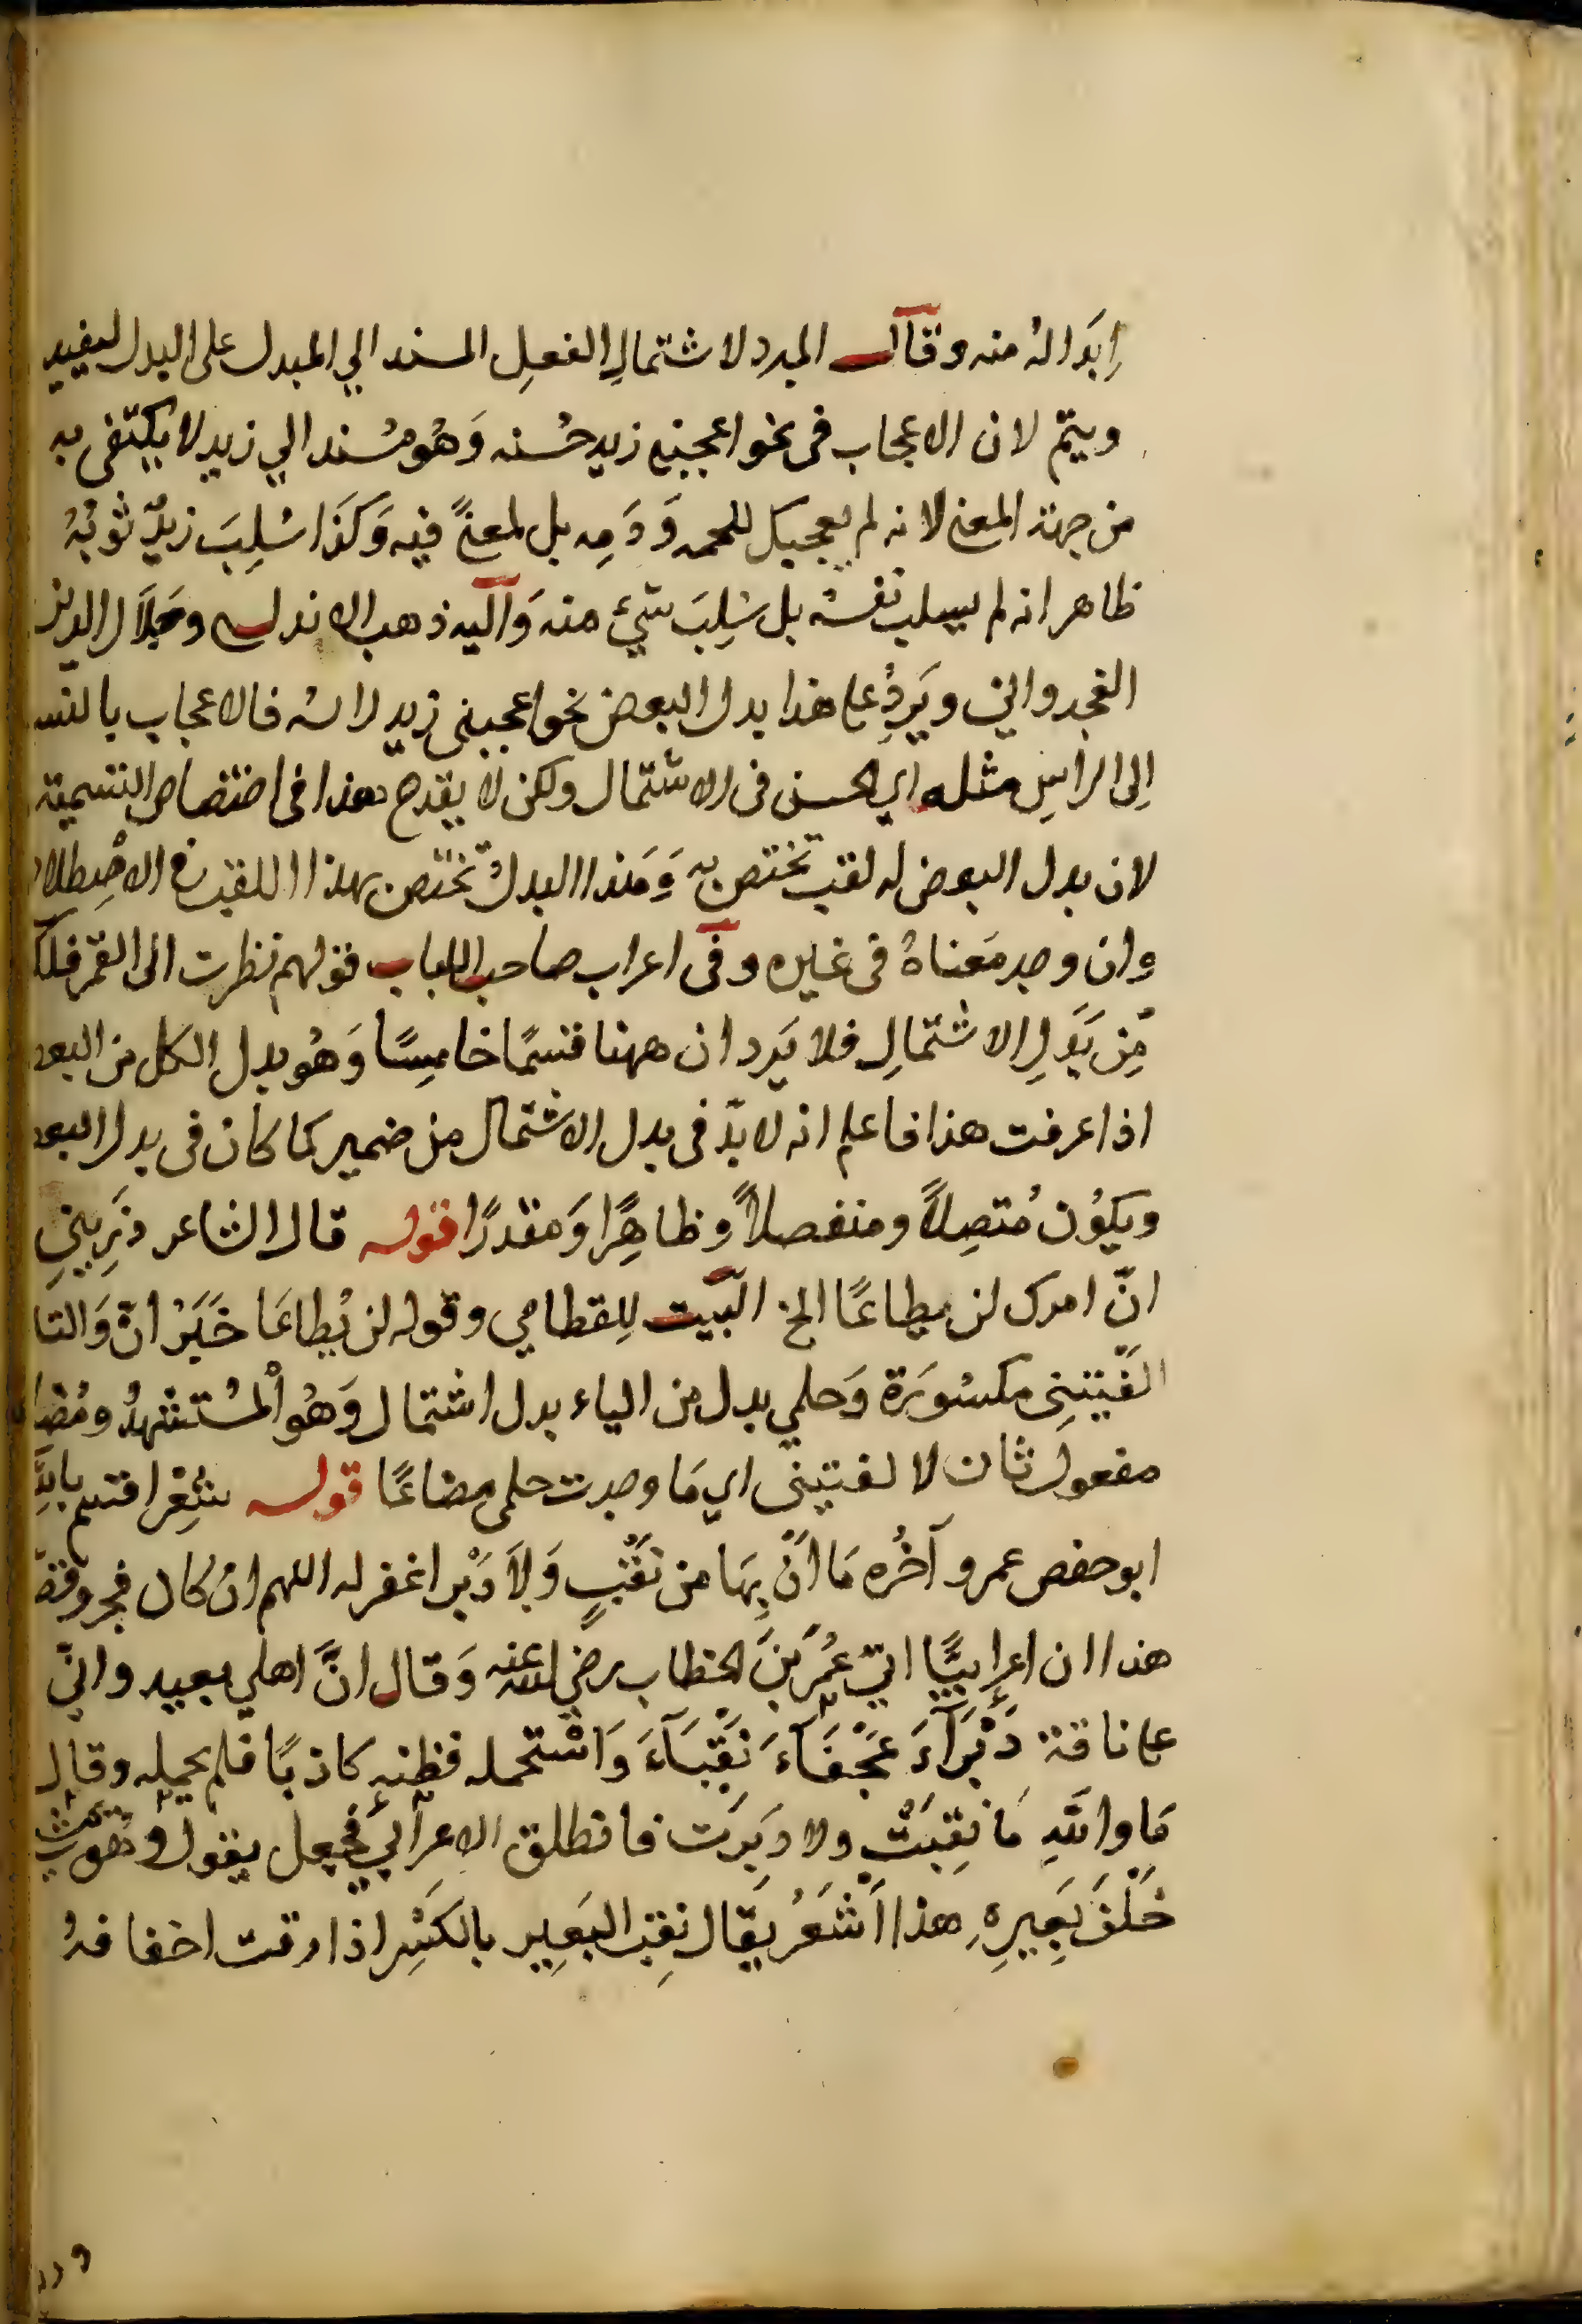 اِبدَالهُ منه وقال المبرد لاشتمالِ الفعلِ المسند الي المبدل على البدل ليفيد
ويتمّ لان الاعجاب فى نحو اعجبنى زيد حسْنه وَهُو مُسْند الي زيد لا يكتفى به
من جهة المعنى لانه لم يعجبك للحمه وَدَمِه بل لمعنًى فيه وَكَذَا سُلِبَ زيدٌ ثوبُهُ
ظاهر انه لم يسلب نفسُه بل سُلِبَ شَيْء منه وَاليه ذهب الاندلسى وجلال الدين
الغجدوانى ويَرِدُ على هذا بدل البعض نحو اعجبنى زيد راسُه فالاعجاب بالنس
اِلى الراسِ مثله اي الحسن فى الاشتمال ولكن لا يقدح هذا فى اختصاص التسمية
لان بدل البعض له لقب تختص به وَهَذا البدلُ تختص بهذا اللقب فى الاصْطلاح
وان وجد مَعناهُ فى غيره وفى اعراب صاحب اللباب قولهم نظرت الى القمر فلك
مِّن بَدَلِ الاشْتمالِ فلا يَرد ان ههنا قسمًا خامِسًا وَهُو بدل الكل من البعد
اذا عرفت هذا فاعلم انه لا بدّ فى بدل الاشتمال من ضمير كما كان فى بدل البعد
ويكوُن مُتصِلاً ومنفصلاً وظاهِرًا وَمقدرًا قوله قال الشاعر ذَرِينِي
انّ امرك لن يطاعًا الخ البَيت لِلقطامي وقوله لن يُطاعَا خَبَرُ انّ وَالتا
الفَيتنِى مكسُورَة وَحلمي بدل من الياء بدل اشتمال وَهُو الْمُستشهدُ ومُضا
مفعول ثان لالفيتينى اي مَا وجدت حلمى مضاعًا قوله شِعْر اقسم باللهِ
ابو حفص عمر و آخُره مَا اَنْ بِهَا من نَقْبٍ وَلاَ دَبْر اغفر له اللهم ان كان فجر وقصّ
هذا ان اعرابيًّا اتى عُمَر بَنَ الخطاب رضي الله عنه وَقال انَّ اهلي بعيد وانّى
على ناقة دَبْرَآءَ عَجْفَآءَ نَقْبَآءَ وَاسْتحمله فظنه كاذبًا فلم يحمله وقال
مَا واللهِ مَا نقِبَتْ ولا دَبرَت فانطلق الاعرابي فجعل يقول وَهُو يمشى
خَلْفَ بَعِيرِهِ هذا الشَعْرَ يقال نقِبَ البَعِير بالكَسْر اذا رقت اخفافهُ